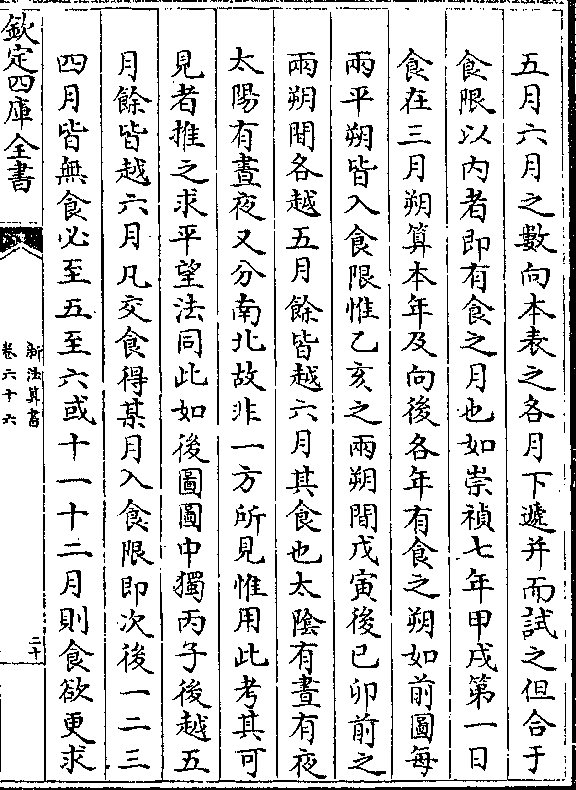 五月六月之數向本表之各月下遞并而試之但合于
食限以内者即有食之月也如崇禎七年甲戌第一日
食在三月朔算本年及向後各年有食之朔如前圖每
兩平朔皆入食限惟乙亥之兩朔間戊寅後已卯前之
兩朔間各越五月餘皆越六月其食也太陰有晝有夜
太陽有晝夜又分南北故非一方所見惟用此考其可
見者推之求平望法同此如後圖圖中獨丙子後越五
月餘皆越六月凡交食得某月入食限即次後一二三
四月皆無食必至五至六或十一十二月則食欲更求
欽定四庫全書
新法算書
卷六十六
二十